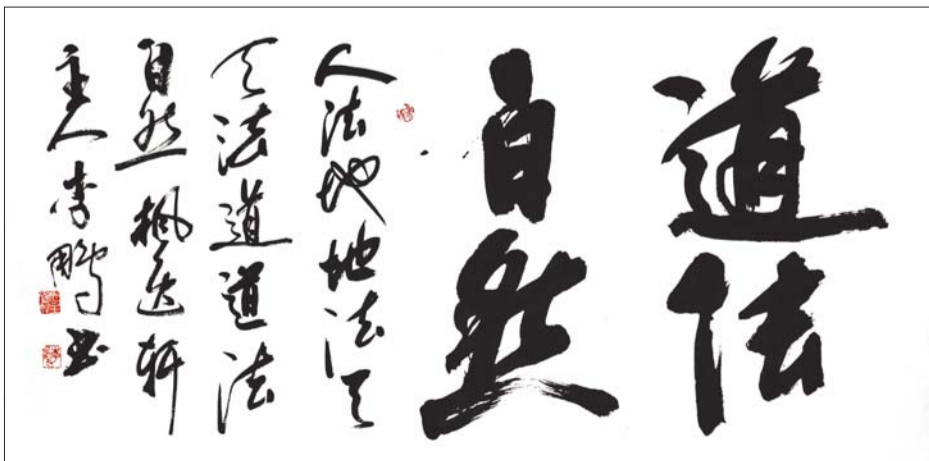 道法
自然
人法地地法天
天法道道法
自然枫逸轩
主人李鹏书